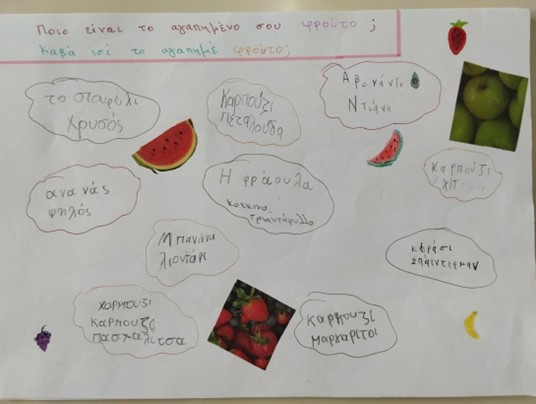 Ποιο είναι το αγαπημένο σου φρούτο ;
Καβά ισί το αγαπημέ φρούτο;
το σταφύλι
Χρυσός
Καρπούζι
πεταλούδα
Αβοκάντο
Ντιάνα
Καρπούζι
χιπ
ανανάς
ψηλός
Η φράουλα
κόκκινο
τριαντάφυλλο
Μπανάνα
λιοντάρι
κεράσι
σπάιντερμαν
καρπουζι
καρπουζο
πασχαλίτσα
καρπουζι
Μαργαρίτοι